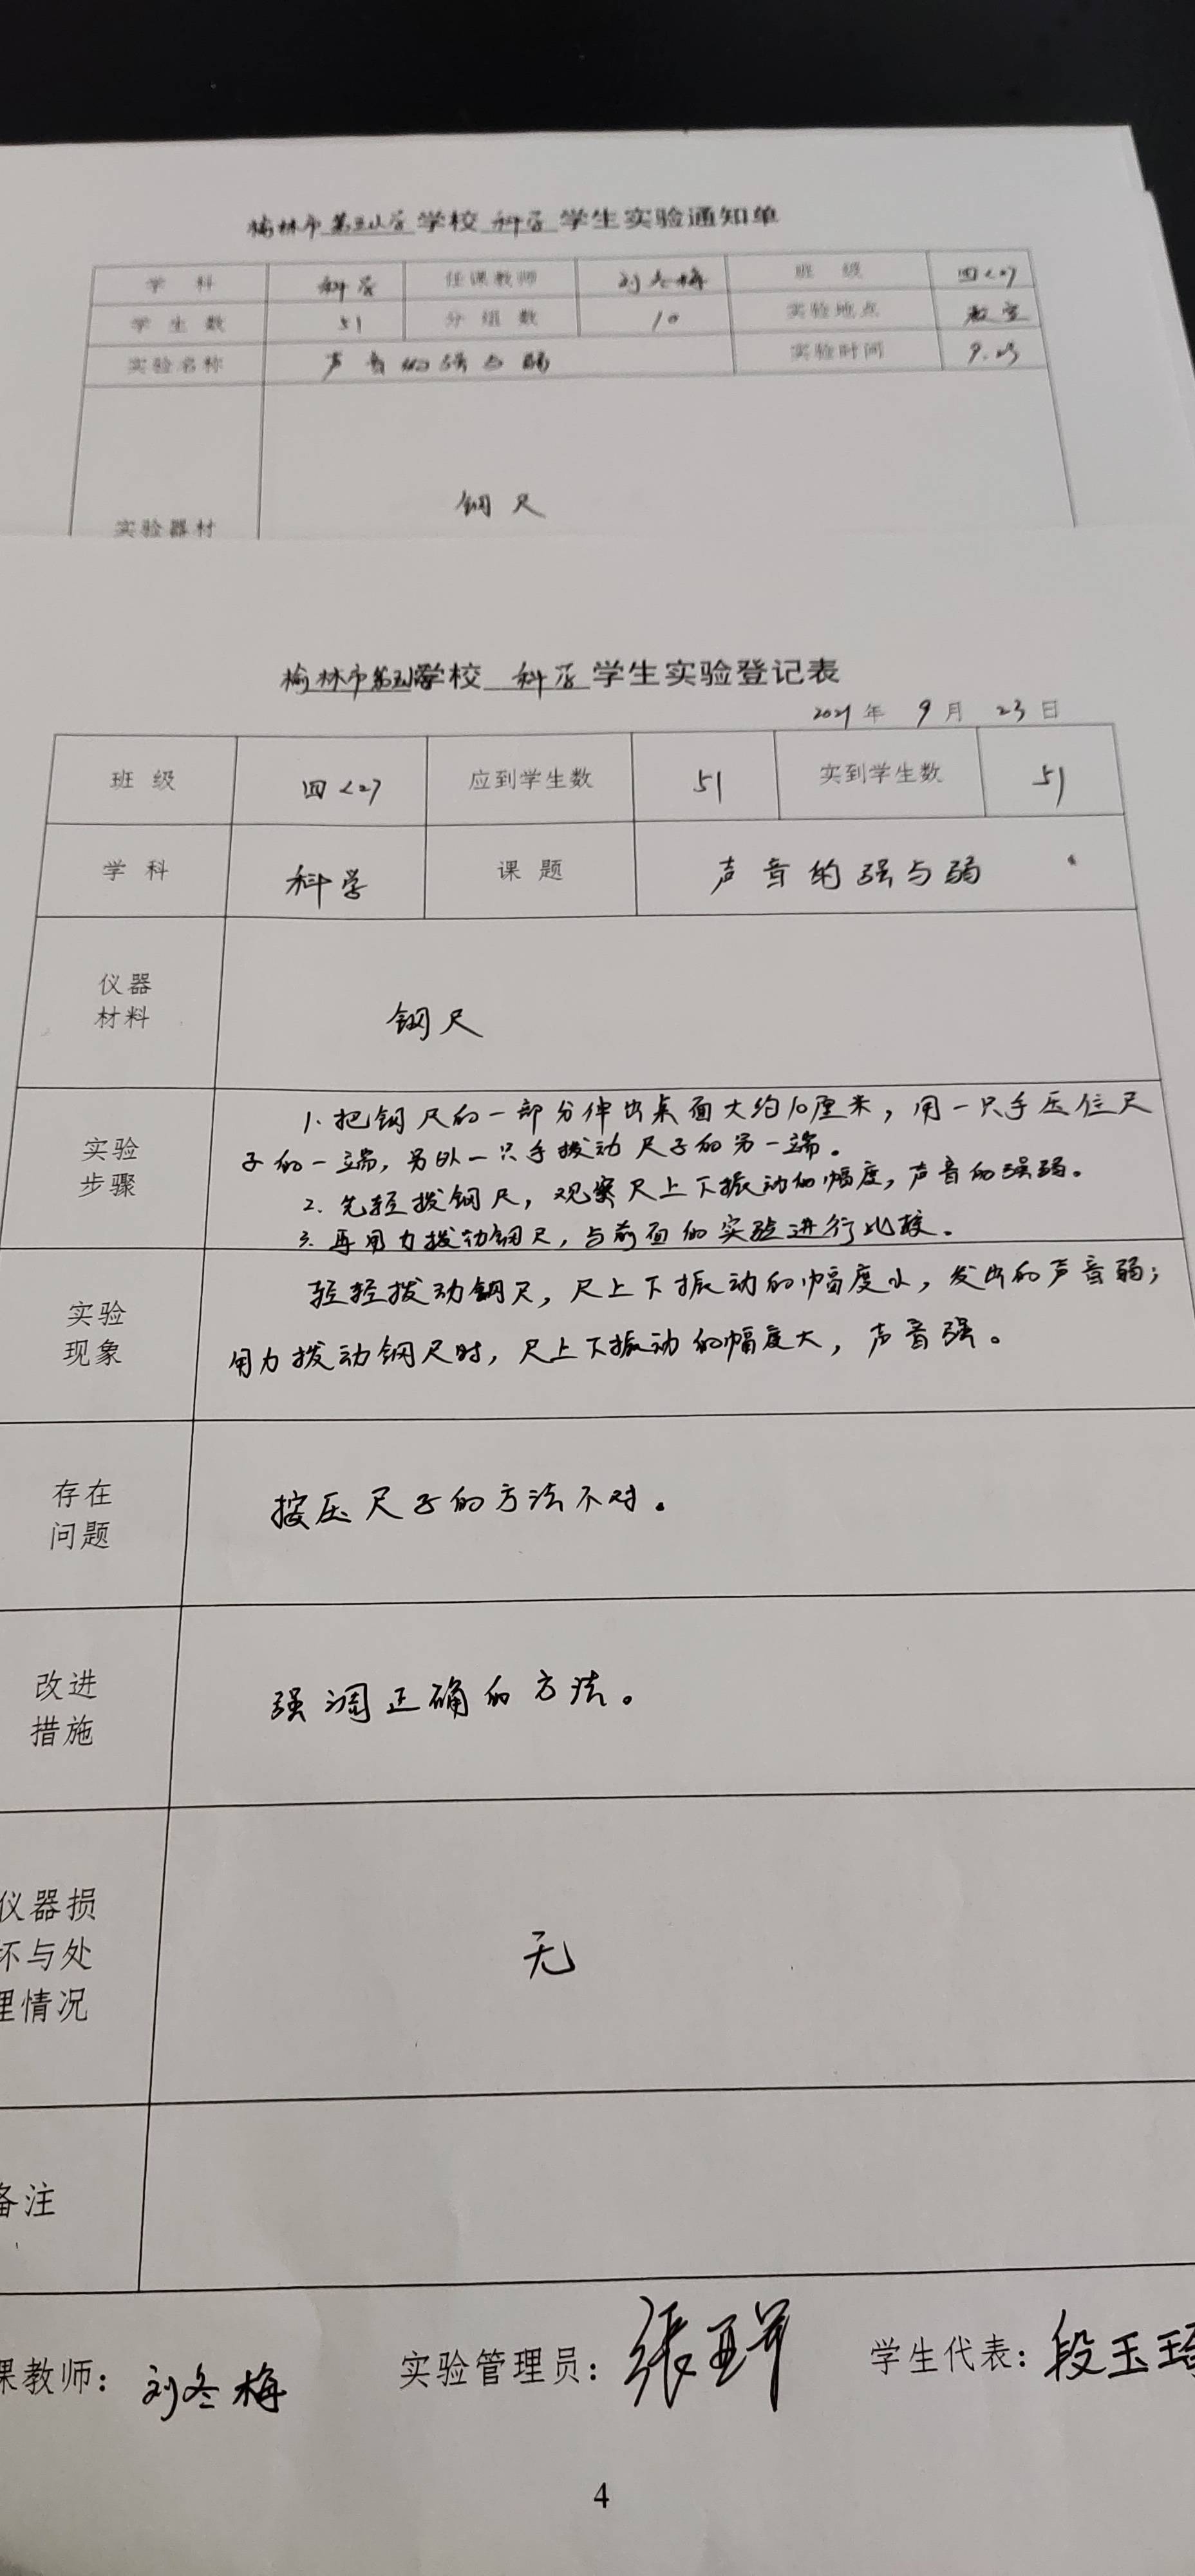 榆林市第五小学学校 科学 学生实验通知单
学 科 科学 任课教师 刘冬梅 班 级 四<2>
学 生 数 51 分 组 数 10 实验地点 教室
实验名称 声音的强与弱 实验时间 9.23
实验器材 钢尺
榆林市第五小学学校 科学 学生实验登记表
2021年 9月 23日
班 级 四<2> 应到学生数 51 实到学生数 51
学 科 科学 课 题 声音的强与弱
仪器
材料
钢尺
实验
步骤
1.把钢尺的一部分伸出桌面大约10厘米，用一只手压住尺
子的一端，另外一只手拨动尺子的另一端。
2.先轻拨钢尺，观察尺上下振动的幅度，声音的强弱。
3.再用力拨动钢尺，与前面的实验进行比较。
实验
现象
轻轻拨动钢尺，尺上下振动的幅度小，发出的声音弱；
用力拨动钢尺时，尺上下振动的幅度大，声音强。
存在
问题
按压尺子的方法不对。
改进
措施
强调正确的方法。
仪器损
坏与处
理情况
无
备注
课教师：刘冬梅 实验管理员：张亚 学生代表：段玉琦
4